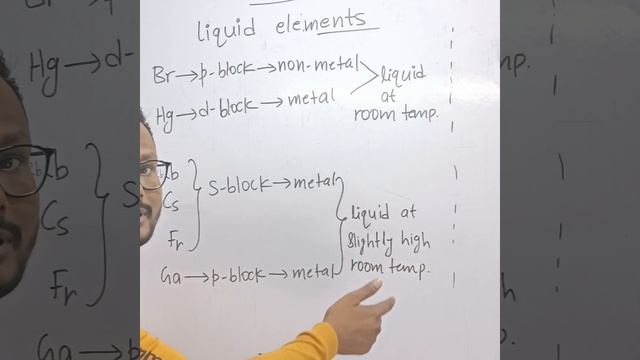 liquid elements
Br→p-block→non-metal
Hg→d-block→metal
liquid
at
room temp.
Rb
Cs
Fr
S-block→metal
Ga→p-block→metal
liquid at
slightly high
room temp.